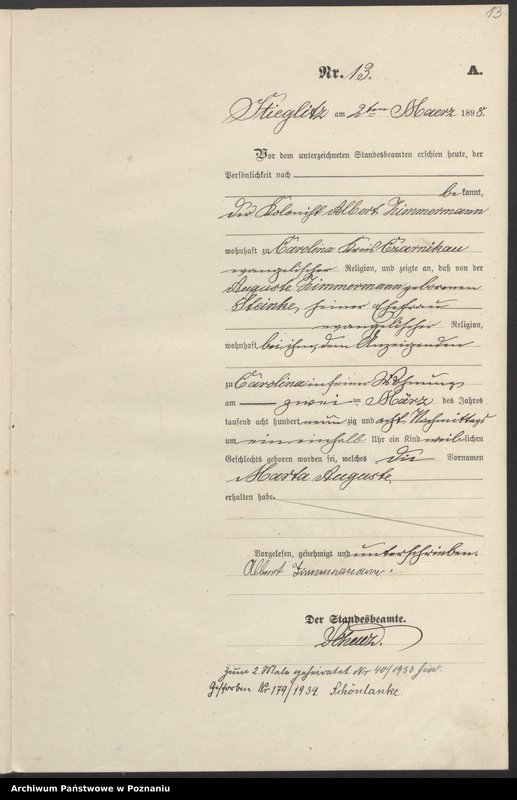 13
Nr. 13.
A.
Stieglitz am 2ten Maerz 1898.
Vor dem unterzeichneten Standesbeamten erschien heute, der
Persönlichkeit nach
be kannt,
der Kolonist Albert Zimmermann
wohnhaft zu Carolina Kreis Czarnikau
evangelischer Religion, und zeigte an, daß von der
Auguste Zimmermann geborenen
Steinke, seiner Ehefrau
evangelischer Religion,
wohnhaft bei ihm, dem Anzeigenden
zu Carolina in seiner Wohnung
am zwei ten März des Jahres
tausend acht hundert neun zig und acht Nachmittags
um ein einhalb Uhr ein Kind weib lichen
Geschlechts geboren worden sei, welches die Vornamen
Marta Auguste
erhalten habe.
Vorgelesen, genehmigt und unterschrieben.
Albert Zimmermann.
Der Standesbeamte.
Zum 2. Male geheiratet Nr 40/1933 hier.
Gestorben Nr 179/1934 Schönlanke
Archiwum Państwowe w Poznaniu